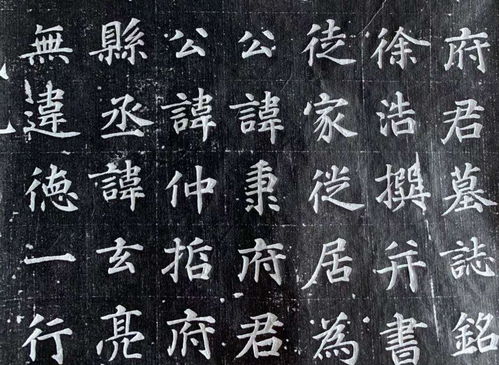 府君墓誌銘
徐浩撰并書
徒家從居為
公諱秉府君
公諱仲府
縣丞諱玄亮
無違德一行